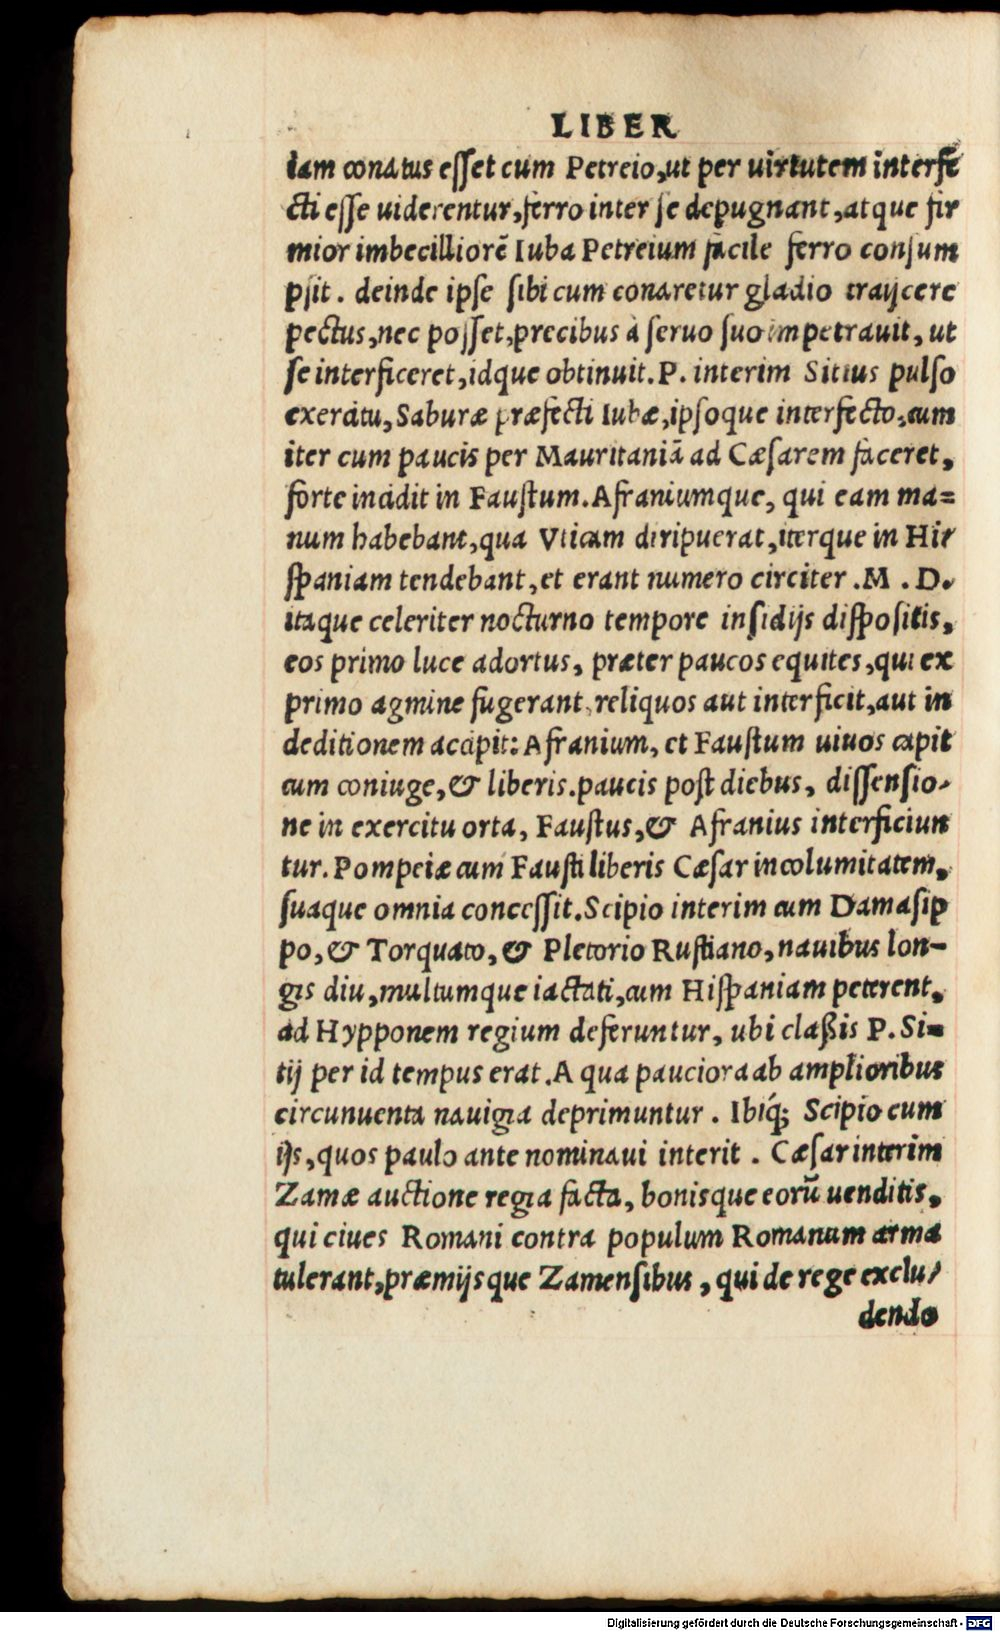 LIBER
iam conatus esset cum Petreio, ut per uirtutem interfe
cti esse uiderentur, ferro inter se depugnant, atque fir
mior imbecilliorē Iuba Petreium facile ferro consum
psit. deinde ipse sibi cum conaretur gladio traijcere
pectus, nec posset, precibus à seruo suo impetrauit, ut
se interficeret, idque obtinuit. P. interim Sitius pulso
exercitu, Saburæ præfecti Iubæ, ipsoque interfecto, cum
iter cum paucis per Mauritaniā ad Cæsarem faceret,
forte incidit in Faustum. Afraniumque, qui eam ma=
num habebant, qua Vticam diripuerat, iterque in Hi
spaniam tendebant, et erant numero circiter .M . D.
itaque celeriter nocturno tempore insidijs dispositis,
eos primo luce adortus, præter paucos equites, qui ex
primo agmine fugerant, reliquos aut interficit, aut in
deditionem accipit: Afranium, et Faustum uiuos capit
cum coniuge, & liberis. paucis post diebus, dissensio-
ne in exercitu orta, Faustus, & Afranius interficiun
tur. Pompeiæ cum Fausti liberis Cæsar incolumitatem,
suaque omnia concessit. Scipio interim cum Damasip
po, & Torquato, & Pletorio Rustiano, nauibus lon-
gis diu, multumque iactati, cum Hispaniam peterent,
ad Hypponem regium deferuntur, ubi claßis P. Si=
tij per id tempus erat. A qua pauciora ab amplioribus
circunuenta nauigia deprimuntur. Ibiq́; Scipio cum
ijs, quos paulo ante nominaui interit. Cæsar interim
Zamæ auctione regia facta, bonisque eorū uenditis,
qui ciues Romani contra populum Romanum arma
tulerant, præmijsque Zamensibus, qui de rege exclu/
dendo
Digitalisierung gefördert durch die Deutsche Forschungsgemeinschaft - DFG